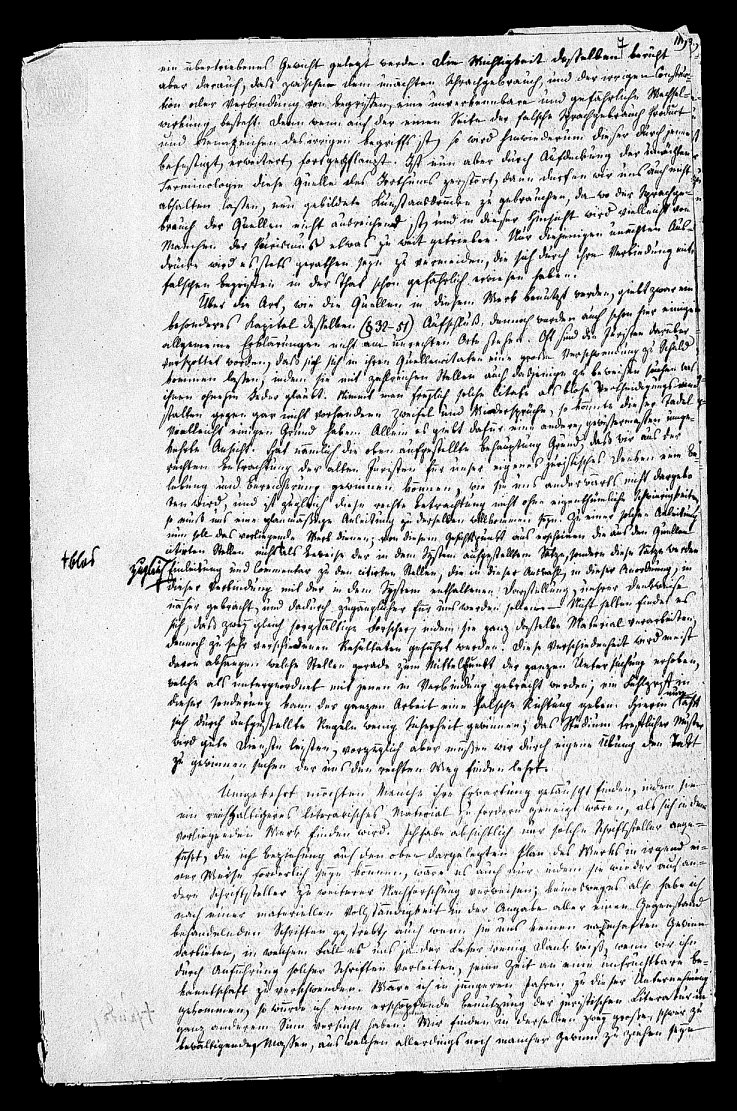 ein übertriebenes Gewicht gelegt werde. Die Wichtigkeit desselben beruht
aber darauf, daß zwischen dem unächten Sprachgebrauch, und der irrigen Construc-
tion oder Verbindung von Begriffen, eine unverkennbare und gefährliche Wechsel-
wirkung besteht. Denn wenn auf der einen Seite der falsche Sprachgebrauch Product
und Kennzeichen des irrigen Begriffs ist, so wird hinwiederum dieser durch jenen
befestigt, erweitert, fortgepflanzt. Ist nun aber durch Aufdeckung der unächten
Terminologie diese Quelle des Irrthums zerstört, dann dürfen wir uns auch nicht
abhalten lassen, neu gebildete Kunstausdrücke zu gebrauchen, da wo der Sprachge-
brauch der Quellen nicht ausreichend ist, und in dieser Hinsicht wird vielleicht von
Manchen der Purismus etwas zu weit getrieben. Nur diejenigen unächten Aus-
drücke wird es stets gerathen seyn zu vermeiden, die sich durch ihre Verbindung mit
falschen Begriffen in der That schon gefährlich erwiesen haben.
Über die Art, wie die Quellen in diesem Werk benutzt werden, giebt zwar ein
besonderes Kapitel desselben (§ 32-51) Aufschluß, dennoch werden auch schon hier einige
allgemeine Erklärungen nicht am unrechten Orte stehen. Oft sind die Juristen darüber
verspottet worden, daß sie sich in ihren Quellencitaten eine große Verschwendung zu Schulden
kommen lassen, indem sie mit zahlreichen Stellen auch dasjenige zu beweisen suchen was
ihnen ohnehin Jeder glaubt. Nimmt man freylich solche Citate als bloße Vertheidigungsan-
stalten gegen gar nicht vorhandene Zweifel und Widersprüche, so könnte dieser Tadel
vielleicht einigen Grund haben. Allein es giebt dafür eine andere, gewissermaßen umge-
kehrte Ansicht. Hat nämlich die oben aufgestellte Behauptung Grund, daß wir aus der
rechten Betrachtung der alten Juristen für unser eigenes juristisches Denken eine Be-
lebung und Bereicherung gewinnen können, wie sie uns anderwärts nicht dargebo-
ten wird, und ist zugleich diese rechte Betrachtung nicht ohne eigenthümliche Schwierigkeiten,
so muß uns eine planmäßige Anleitung zu derselben willkommen seyn. Zu einer solchen Anleitung
nun soll das vorliegende Werk dienen; von diesem Gesichtspunkt aus erscheinen die aus den Quellen
citirten Stellen nicht als Beweise der in dem System aufgestellten Sätze, sondern diese Sätze werden
+ blos
zugleich
Einleitung und Commentar zu den citirten Stellen, die in dieser Auswahl, in dieser Anordnung, in
dieser Verbindung mit der in dem System enthaltenen Vorstellung, unsrer Denkweise
näher gebracht, und dadurch zugänglicher für uns werden sollen. Nicht selten findet es
sich, daß zwey gleich sorgfältige Forscher, indem sie ganz dasselbe Material verarbeiten,
dennoch zu sehr verschiedenen Resultaten geführt werden. Diese Verschiedenheit wird meist
davon abhängen welche Stellen gerade zum Mittelpunkt der ganzen Untersuchung erhoben,
welche als untergeordnet mit jenen in Verbindung gebracht werden; ein Fehlgriff in
dieser Sonderung kann der ganzen Arbeit eine falsche Richtung geben. Hierin läßt
sich durch aufgestellte Regeln wenig Sicherheit gewinnen; das Studium trefflicher Muster
wird gute Dienste leisten, vorzüglich aber müssen wir durch eigene Übung den Takt
zu gewinnen suchen der uns den rechten Weg finden lehrt.
Umgekehrt möchten Manche ihre Erwartung getäuscht finden, indem sie
ein reichhaltigeres literarisches Material zu fordern geneigt wären, als sich in dem
vorliegenden Werk finden wird. Ich habe absichtlich nur solche Schriftsteller ange-
führt, die in Beziehung auf den oben dargelegten Plan des Werks in irgend ei-
ner Weise förderlich seyn können, wäre es auch nur indem sie wieder auf an-
dere Schriftsteller zu weiterer Nachforschung verweisen; keineswegs also habe ich
nach einer materiellen Vollständigkeit in der Angabe aller einen Gegenstand
behandelnden Schriften gestrebt, auch wenn sie uns keinen nahmhaften Gewinn
darbieten, in welchem Fall es uns ja der Leser wenig Dank weiß, wenn wir ihn
durch Anführung solcher Schriften verleiten, seine Zeit an eine unfruchtbare Be-
kanntschaft zu verschwenden. Wäre ich in jüngeren Jahren zu dieser Unternehmung
gekommen, so würde ich eine erschöpfende Benutzung der juristischen Literatur in
ganz anderem Sinn versucht haben. Wir finden in derselben zwey große, schwer zu
bewältigende Massen, aus welchen allerdings noch mancher Gewinn zu ziehen seyn